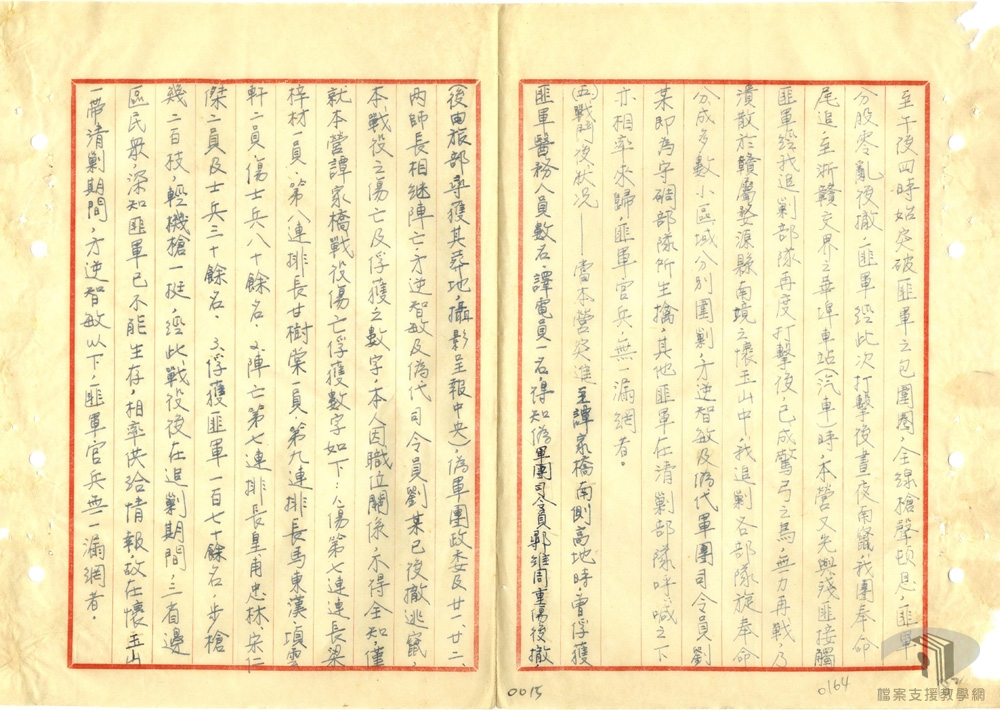 至午後四時始突破匪軍之包圍圈,全線槍聲頓息,匪軍
分股零亂後撤,匪軍經此次打擊後晝夜南竄,我團奉命
尾追至浙贛交界之華埠車站(汽車)時,本營又先與殘匪接觸
匪軍經我追剿部隊再度打擊後,已成驚弓之鳥,無力再戰,乃
潰散於贛屬婺源縣南境之懷玉山中,我追剿各部隊旋奉命
分成多數小區域分別圍剿,方逆智敏及偽代軍團司令員劉
某即為守碉部隊所生擒,其他匪軍在清剿部隊呼喊之下
亦相率來歸,匪軍官兵,無一漏網者。
(五)戰鬥後狀況——當本營突進至譚家橋南側高地時,曾俘獲
匪軍醫務人員數名,譯電員一名,得知偽軍團司令員尋維周重傷後撤,
(後由旅部尋獲其葬地,攝影呈報中央),偽軍團政委及廿一、廿二、
兩師長相繼陣亡,方逆智敏及偽代司令員劉某已後撤逃竄,
本戰役之傷亡及俘獲之數字,本人因職位關係,不得全知,僅
就本營譚家橋戰役傷亡俘獲數字如下:1.傷第七連連長梁
梓材一員、第八連排長甘樹棠一員、第九連排長馬東漢、項雲
軒二員,傷士兵八十餘名、2.陣亡第七連排長皇甫忠林、宋仁
傑二員及士兵三十餘名、3.俘獲匪軍一百七十餘名,步槍
幾二百枝,輕機槍一挺,經此戰役後在追剿期間,三省邊
區民眾,深知匪軍已不能生存,相率供給情報,故在懷玉山
一帶清剿期間,方逆智敏以下,匪軍官兵無一漏網者。
0015
0164
檔案支援教學網